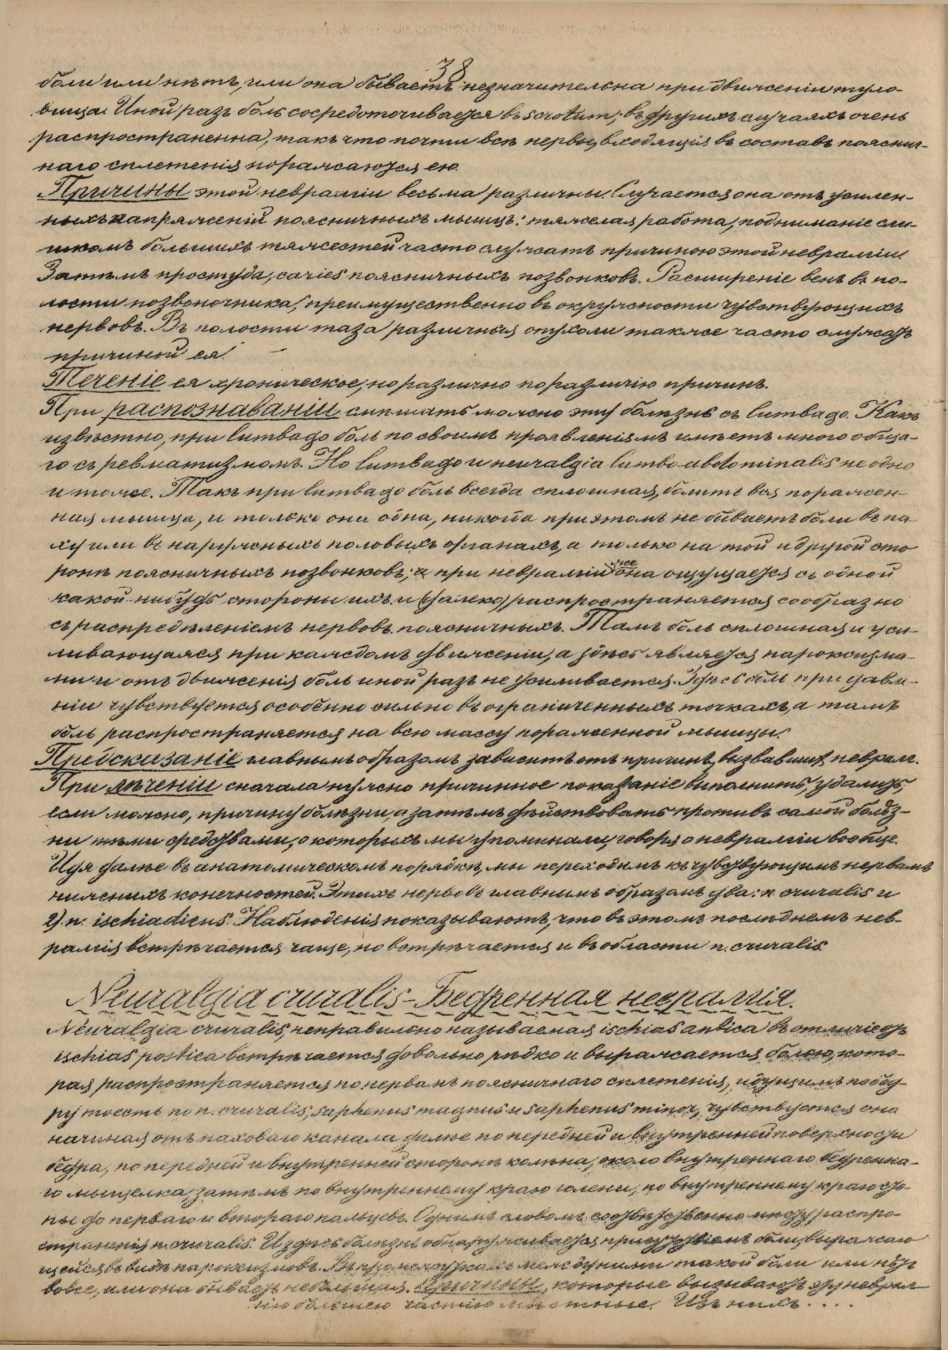 38
боли или нѣтъ, или она бываетъ незначительна при движеніи туло-
вища. Иной разъ боль сосредоточивается въ scrotum, въ другихъ случаяхъ очень
распространенна, такъ что почти всѣ нервы, входящія въ составъ пояснич-
наго сплетенія поражаются ею.
Причины этой невралгіи весьма различны. Случается она отъ усилен-
ныхъ напряженій поясничныхъ мышцъ: тяжелая работа, подниманіе сли-
шкомъ большихъ тяжестей часто служатъ причиною этой невралгіи
Затѣмъ простуда, caries поясничныхъ позвонковъ. Расширеніе венъ въ по-
лости позвоночника, преимущественно въ окружности чувствующихъ
нервовъ. Въ полости таза различныя опухоли также часто служатъ
причиной ея.
Теченіе ея хроническое, но различно по различію причинъ.
При распознаваніи смѣшать можно эту болѣзнь съ lumbago. Какъ
извѣстно, при lumbago боль по своимъ проявленіямъ имѣетъ много обща-
го съ ревматизмомъ. Но lumbago и neuralgia lumbo-abdominalis не одно
и тоже. Такъ при lumbago боль всегда сплошная, болитъ вся поражен-
ная мышца, и только она одна, никогда при этомъ не бываетъ боли въ па-
ху или въ наружныхъ половыхъ органахъ, а только на той и другой сто
ронѣ поясничныхъ позвонковъ; при невралгіи же она ощущается съ одной
какой-нибудь стороны ихъ и (далеко) распространяется сообразно
съ распредѣленіемъ нервовъ поясничныхъ. Тамъ боль сплошная и уси-
ливающаяся при каждомъ движеніи, а здѣсь является пароксизма-
ми и отъ движенія боль иной разъ не усиливается. Здѣсь боль при давле-
ніи чувствуется особенно сильно въ ограниченныхъ точкахъ, а тамъ
боль распространяется на всю массу пораженной мышцы.
Предсказаніе главнымъ образомъ зависитъ отъ причинъ, вызвавшихъ невралг.
При лѣченіи сначала нужно причинное показаніе выполнить, удалить,
если можно, причину болѣзни, а затѣмъ дѣйствовать противъ самой болѣз-
ни тѣми средствами, о которыхъ мы упоминали, говоря о невралгіи вообще.
Идя далѣе въ анатомическомъ порядкѣ, мы переходимъ къ чувствующимъ нервамъ
нижнихъ конечностей. Этихъ нервовъ главнымъ образомъ два: n. cruralis и
2) n. ischiadicus. Наблюденія показываютъ, что въ этомъ послѣднемъ нев-
ралгія встрѣчается чаще, но встрѣчается и въ области n. cruralis.
Neuralgia cruralis – Бедренная невралгія.
Neuralgia cruralis, неправильно называемая ischias antica въ отличіе отъ
ischias postica встрѣчается довольно рѣдко и выражается болью, кото-
рая распространяется по нервамъ поясничнаго сплетенія, идущимъ по бед-
ру тоесть по n. cruralis, saphenus magnus и saphenus minor, чувствуется она
начиная отъ пахового канала далѣе по передней и внутренней поверхности
бедра, по передней и внутренней сторонѣ колѣна, около внутренняго бедренна-
го мыщелка, затѣмъ по внутреннему краю голени, по внутреннему краю сто-
пы до перваго и второго пальцевъ. Однимъ словомъ соотвѣтственно мѣсту распро-
страненія n. cruralis. И здѣсь болѣзнь обнаруживается присутствіемъ боли, выражаю
щейся въ видѣ пароксизмовъ. Въ промежуткахъ между ними такой боли или нѣтъ
вовсе, или она бываетъ небольшая. Причины, которые вызываютъ эту неврал-
гію большею частію мѣстные. Изъ нихъ....